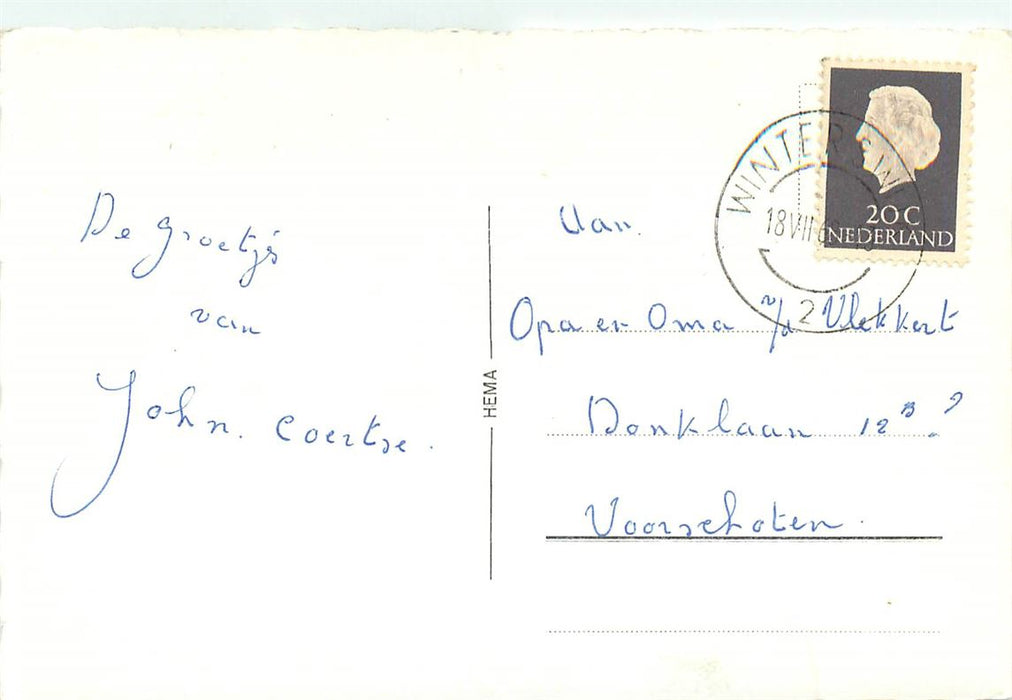 De groetjes
van
John. Coertse.
HEMA
WINTERSW
18 VII 6
2
20 C
NEDERLAND
Aan.
Opa en Oma v/d Vlekkert
Donklaan 12 B. ?
Voorschoten.